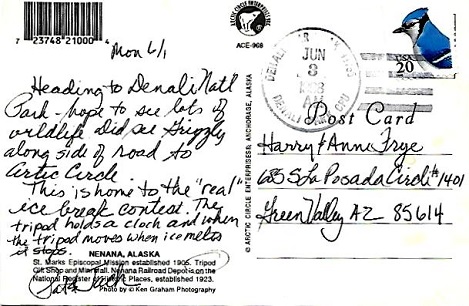 7 23748 21000 4
Mon 6/1
Heading to Denali Nat'l
Park - hope to see lots of
wildlife. Did see Grizzly
along side of road to
Arctic Circle.
This is home to the "real"
ice break contest. The
tripod holds a clock and when
the tripod moves when ice melts
it stops.
NENANA, ALASKA
St. Marks Episcopal Mission established 1905. Tripod
Gift Shop and Mini Mall. Nenana Railroad Depot is on the
National Register of Historic Places, established 1923.
Photo by © Ken Graham Photography
ARCTIC CIRCLE ENTERPRISES INC
ACE-968
© ARCTIC CIRCLE ENTERPRISES, ANCHORAGE, ALASKA
DENALI
JUN
3
AM
USA
20
Post Card
Harry & Anne Frye
685 S La Posada Circle #1401
Green Valley AZ 85614